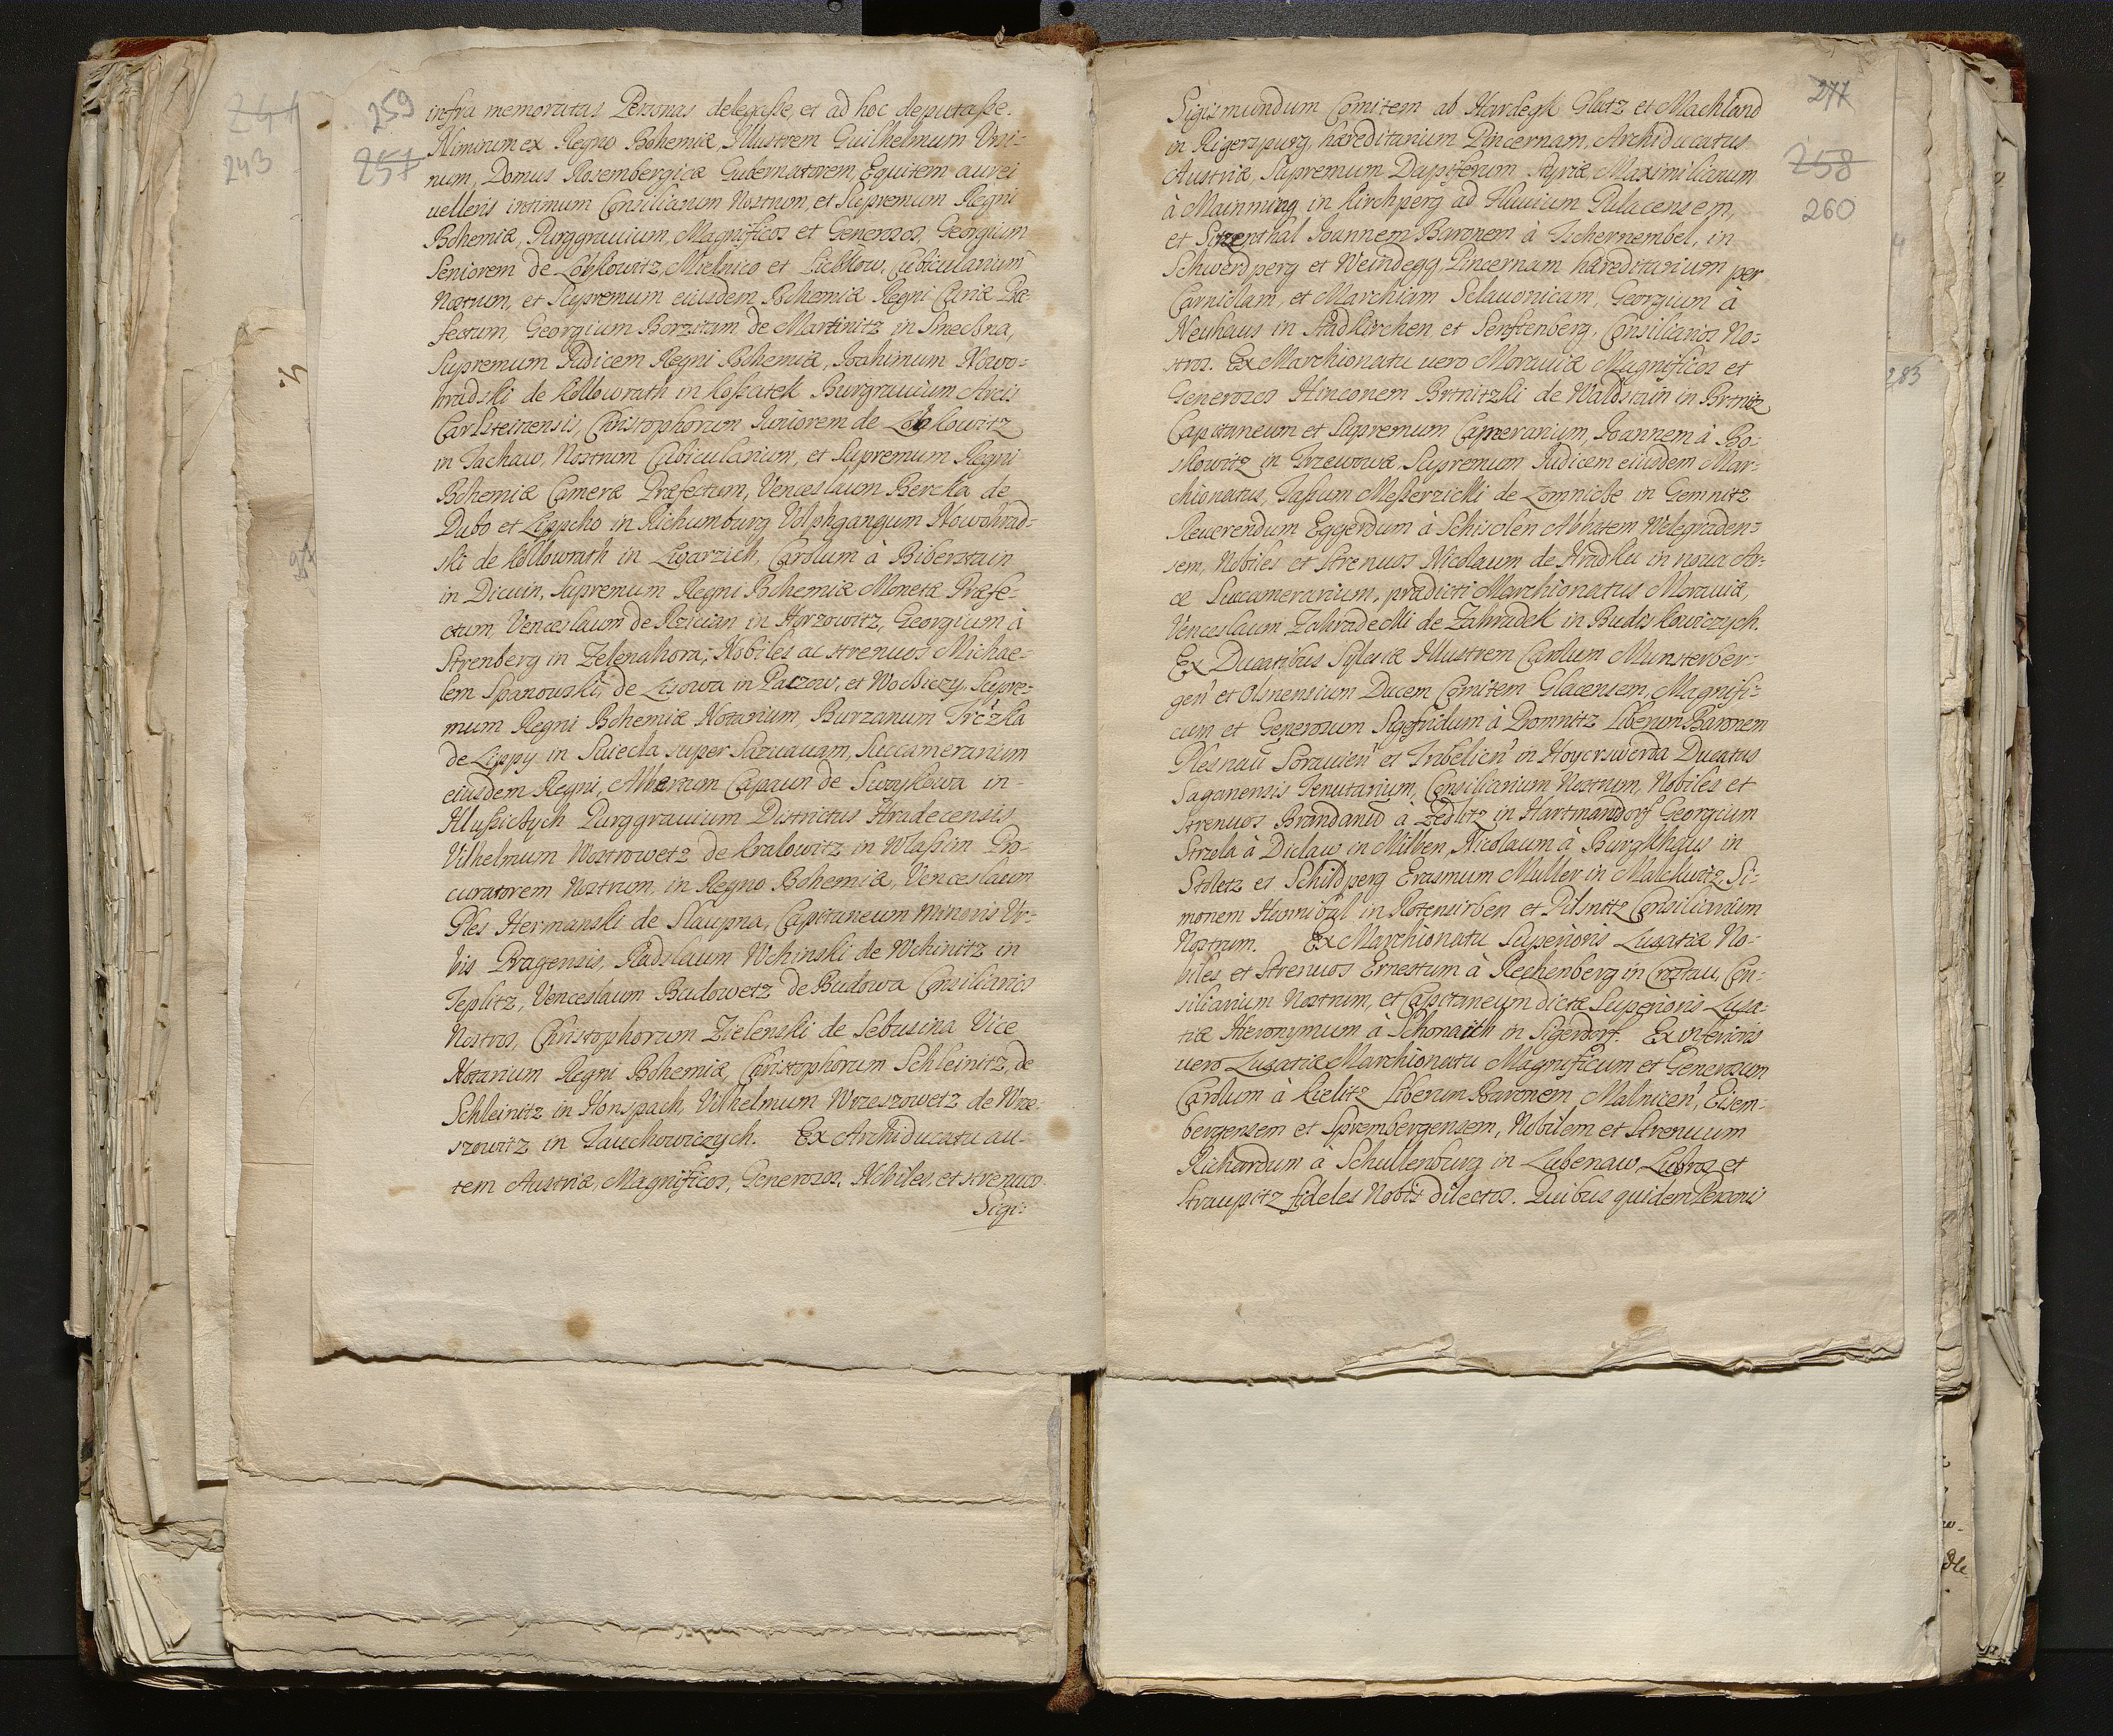 241
243
259
257
infra memoratas Personas delegaße, et ad hoc deputaße.
Nimirum ex Regno Bohemiæ, Illustrem Guilhelmum Vrsi-
num, Domus Rosembergicæ Gubernatorem, Equitem aurei
uelleris intimum Consiliarium Nostrum, et Supremum Regni
Bohemiæ, Purggrauium, Magnificos et Generosos, Georgium
Seniorem de Lobkowitz, Mielnico et Liczkow, Cubicularium
Nostrum, et Supremum eiusdem Bohemiæ Regni Curiæ Præ-
fectum, Georgium Borzitam de Martinitz in Smecßna,
Supremum Iudicem Regni Bohemiæ, Ioahimum Nowo-
hradski de Kollowrath in Koßatek Burgrauium Arcis
Carlsteinensis, Christophorum Iuniorem de Lobkowitz
in Tachaw, Nostrum Cubicularium, et Supremum Regni
Bohemiæ Cameræ Præfectum, Venceslaum Bercka de
Dubo et Lippcho in Richumburg Volphgangum Nowohrad-
ski de Kollowrath in Zigarzich, Carolum à Biberstain
in Diewin, Supremum Regni Bohemiæ Monetæ Præfe-
ctum, Venceslaum de Rzician in Horzowitz, Georgium à
Strenberg in Zelenahora, Nobiles ac strenuos Michae-
lem Spanowski, de Lisowa in Paczow, et Wocßiczy, Supre-
mum Regni Bohemiæ Notarium, Burzanum Trczka
de Lippy in Swiecla super Sazuauam, Succamerarium
eiusdem Regni, Albertum Capaun de Swoykowa in
Hlußiczych Purggrauium Districtus Hradecensis
Vilhelmum Wostrowetz de Kralowitz in Wlaßim Pro-
curatorem Nostrum, in Regno Bohemiæ, Venceslaum
Ples Hermanski de Slaupna, Capitaneum Minoris Vr-
bis Pragensis, Radslaum Wchinski de Wchinitz in
Teplitz, Venceslaum Budowetz de Budowa Consiliarios
Nostros, Christophorum Zielenski de Sebusina Vice
Notarium Regni Bohemiæ, Christophorum Schleinitz, de
Schleinitz in Honspach, Vilhelmum Wrzesowetz de Wrze-
szowitz in Tauchowiczych. Ex Archiducatu au-
tem Austriæ, Magnificos, Generosos, Nobiles, et strenuos
Sigi:
277
258
260
283
Sigismundum Comitem ab Hardegk Glatz et Machland
in Rigerspurg, hæreditarium Pincernam, Archiducatus
Austriæ, Supremum Dapiferum Styriæ, Maximilianum
à Mainming in Kirchperg ad Fluuium Pulacensem,
et Sitzenthal Ioannem Baronem à Tschernembel, in
Schwerdperg et Weindegg, Pincernam hæreditarium per
Carniolam, et Marchiam Sclauonicam, Georgium à
Neuhaus in Stadkirchen et Senftenberg, Consiliarios No-
stros. Ex Marchionatu uero Morauiæ Magnificos et
Generosos Hinconem Brtnitzki de Waldstain in Brtnitz
Capitaneum et Supremum Camerarium, Ioannem à Bo-
skowitz in Trzewowa Supremum Iudicem eiusdem Mar-
chionatus, Taßum Meßerzicki de Lomnicze in Gemnitz
Reuerendum Eggerdum à Schisolen Abbatem Welegraden-
sem, Nobiles et Strenuos Nicolaum de Hradku in noua Ar-
ce Succamerarium, prædicti Marchionatus Morauiæ,
Venceslaum Zahradecki de Zahradek in Budiskowiczych.
Ex Ducatibus Sylesiæ Illustrem Carolum Munsterber-
gen' et Olsnensium Ducem Comitem Glacensem, Magnifi-
cum et Generosum Sigefridum à Promnitz Liberum Baronem
Plesnau' Sorauien' et Tribelien' in Hoyerswerda Ducatus
Saganensis Tenutarium, Consiliarium Nostrum, Nobiles et
Strenuos Brandanū à Zedlitz in Hartmandorf Georgium
Strzela à Diclaw in Milben, Nicolaum à Burgkhaus in
Stoletz et Schildperg Erasmum Muller in Malckwitz Si-
monem Hannibal in Rotensirben et Pilsnitz Consiliarium
Nostrum. Ex Marchionatu Superioris Lusatiæ No-
biles et Strenuos Ernestum à Rechenberg in Crostau, Con-
siliarium Nostrum, et Capitaneum dictæ Superioris Lusa-
tiæ Hieronymum à Schonaich in Sigerdorf. Ex inferioris
uero Lusatiæ Marchionatu Magnificum et Generosum
Carolum à Kielitz Liberum Baronem Malnicen', Eisem-
bergensem et Sprembergensem, Nobilem et Strenuum
Richardum à Schullenburg in Lubenaw, Lubros et
Straupitz fideles Nobis dilectos. Quibus quidem Personis